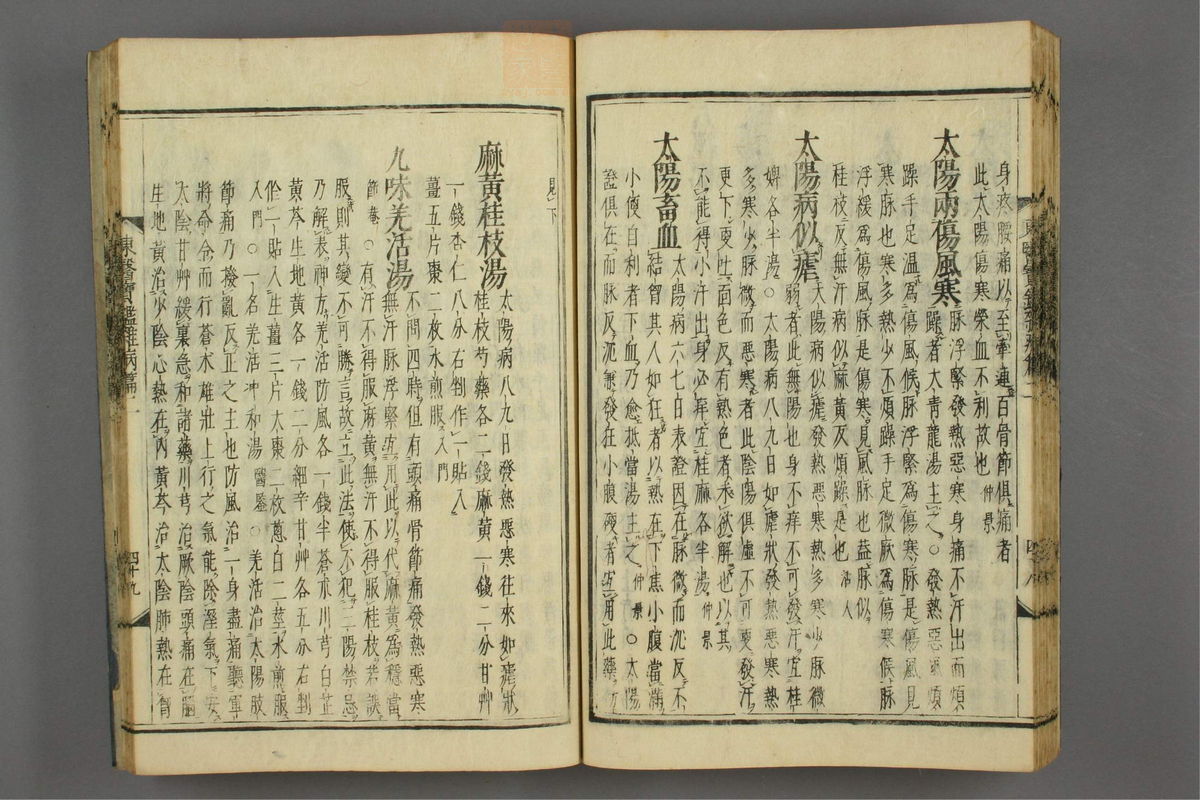 身疼腰痛以至牽連百骨節俱痛者
此太陽傷寒榮血不利故也仲景
太陽兩傷風寒
脉浮緊發熱惡寒身痛不汗出而煩
躁者大青龍湯主之○發熱惡風煩
躁手足溫爲傷風候脉浮緊爲傷寒脉是傷風見
寒脉也寒多熱少不煩躁手足微厥爲傷寒候脉
浮緩爲傷風脉是傷寒見風脉也盖脉似
桂枝反無汗病似麻黃反煩躁是也活人
太陽病似瘧
太陽病似瘧發熱惡寒熱多寒少脉微
弱者此無陽也身不痒不可發汗宜桂
婢各半湯○太陽病八九日如瘧狀發熱惡寒熱
多寒少脉微而惡寒者此陰陽俱虛不可更發汗
更下更吐面色反有熱色者未欲解也以其
不能得小汗出身必痒宜桂麻各半湯仲景
太陽畜血
太陽病六七日表證因在脉微而沉反不
結胷其人如狂者以熱在下焦小腹當滿
小便自利者下血乃愈抵當湯主之仲景○太陽
證俱在而脉反沉兼發狂小腹硬者宜用此藥
東醫寶鑑雜病篇二
四十八
見下
麻黃桂枝湯
太陽病八九日發熱惡寒往來如瘧狀
桂枝芍藥各二錢麻黃一錢二分甘艸
一錢杏仁八分右剉作一貼入
薑五片棗二枚水煎服入門
九味羌活湯
不問四時但有頭痛骨節痛發熱惡寒
無汗脉浮緊宜用此以代麻黃爲穩當
節菴○有汗不得服麻黃無汗不得服桂枝若誤
服則其變不可勝言故立此法使不犯三陽禁忌
乃解表神方羌活防風各一錢半蒼朮川芎白芷
黃芩生地黃各一錢二分細辛甘艸各五分右剉
作一貼入生薑三片大棗二枚葱白二莖水煎服
入門○一名羌活冲和湯醫鑑○羌活治太陽肢
節痛乃撥亂反正之主也防風治一身盡痛聽軍
將命令而行蒼朮雄壯上行之氣能除濕氣下安
太陰甘艸緩裏急和諸藥川芎治厥陰頭痛在腦
生地黃治少陰心熱在內黃芩治太陰肺熱在胷
東醫寶鑑雜病篇二
四十九